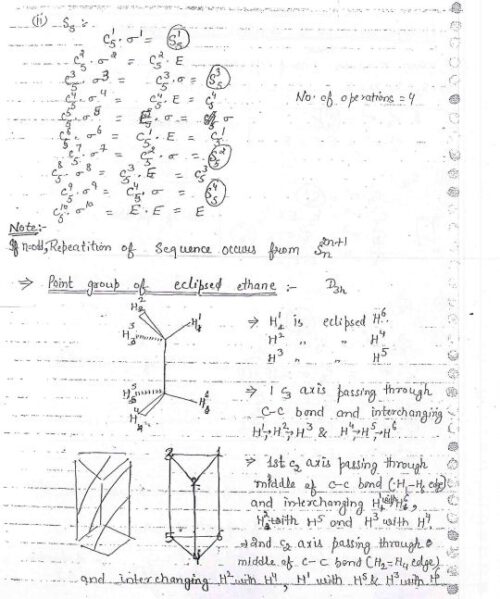 (ii) S₅ :-
C₅¹ · σ¹ = S₅¹
C₅² · σ² = C₅² · E
C₅³ · σ³ = C₅³ · σ = S₅³
C₅⁴ · σ⁴ = C₅⁴ · E = C₅⁴
No. of operations = 4
C₅⁵ · σ⁵ = E · σ = σ
C₅⁶ · σ⁶ = C₅¹ · E = C₅¹
C₅⁷ · σ⁷ = C₅² · σ = S₅²
C₅⁸ · σ⁸ = C₅³ · E = C₅³
C₅⁹ · σ⁹ = C₅⁴ · σ = S₅⁴
C₅¹⁰ · σ¹⁰ = E · E = E
Note:-
If n=odd, Repeatition of sequence occurs from Sₙ²ⁿ⁺¹
⇒ Point group of eclipsed ethane :- D₃ₕ
H² H³ H¹
H⁵ H⁴ H⁶
⇒ H¹ is eclipsed H⁶
H² " " H⁴
H³ " " H⁵
⇒ 1 C₃ axis passing through
C-C bond and interchanging
H¹→H²→H³ & H⁴→H⁵→H⁶
3 1 2
5 6 4
⇒ 1st C₂ axis passing through
middle of C-C bond (H₁-H₆ edge)
and interchanging H¹ with H⁶,
H² with H⁵ and H³ with H⁴
⇒ 2nd C₂ axis passing through
middle of C-C bond (H₂=H₄ edge)
and interchanging H² with H⁴, H¹ with H⁵ & H³ with H⁶